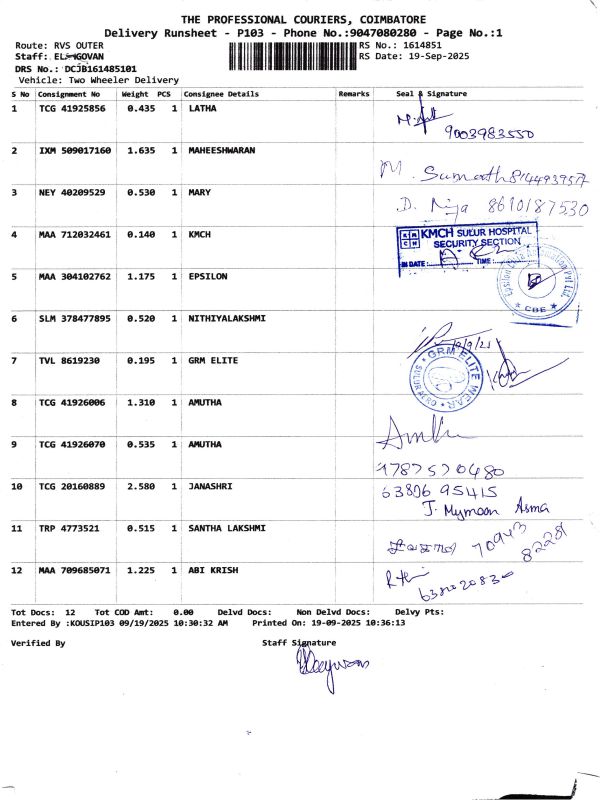 THE PROFESSIONAL COURIERS, COIMBATORE
Delivery Runsheet - P103 - Phone No.:9047080280 - Page No.:1
Route: RVS OUTER RS No.: 1614851
Staff: ELANGOVAN RS Date: 19-Sep-2025
DRS No.: DCJB161485101
Vehicle: Two Wheeler Delivery
S No Consignment No Weight PCS Consignee Details Remarks Seal & Signature
1 TCG 41925856 0.435 1 LATHA
9003983550
2 IXM 509017160 1.635 1 MAHEESHWARAN
M. Sumathi
3 NEY 40209529 0.530 1 MARY
D. 8610187530
4 MAA 712032461 0.140 1 KMCH
KMCH SULUR HOSPITAL
SECURITY SECTION
IN DATE: TIME:
5 MAA 304102762 1.175 1 EPSILON
Epsilon Pvt Ltd.
★ CBE ★
6 SLM 378477895 0.520 1 NITHIYALAKSHMI
7 TVL 8619230 0.195 1 GRM ELITE
GRM ELITE WEAR
8 TCG 41926006 1.310 1 AMUTHA
9 TCG 41926070 0.535 1 AMUTHA
10 TCG 20160889 2.580 1 JANASHRI
63806 95415
J. Mymoon Asma
11 TRP 4773521 0.515 1 SANTHA LAKSHMI
70943
82228
12 MAA 709685071 1.225 1 ABI KRISH
Tot Docs: 12 Tot COD Amt: 0.00 Delvd Docs: Non Delvd Docs: Delvy Pts:
Entered By :KOUSIP103 09/19/2025 10:30:32 AM Printed On: 19-09-2025 10:36:13
Verified By Staff Signature